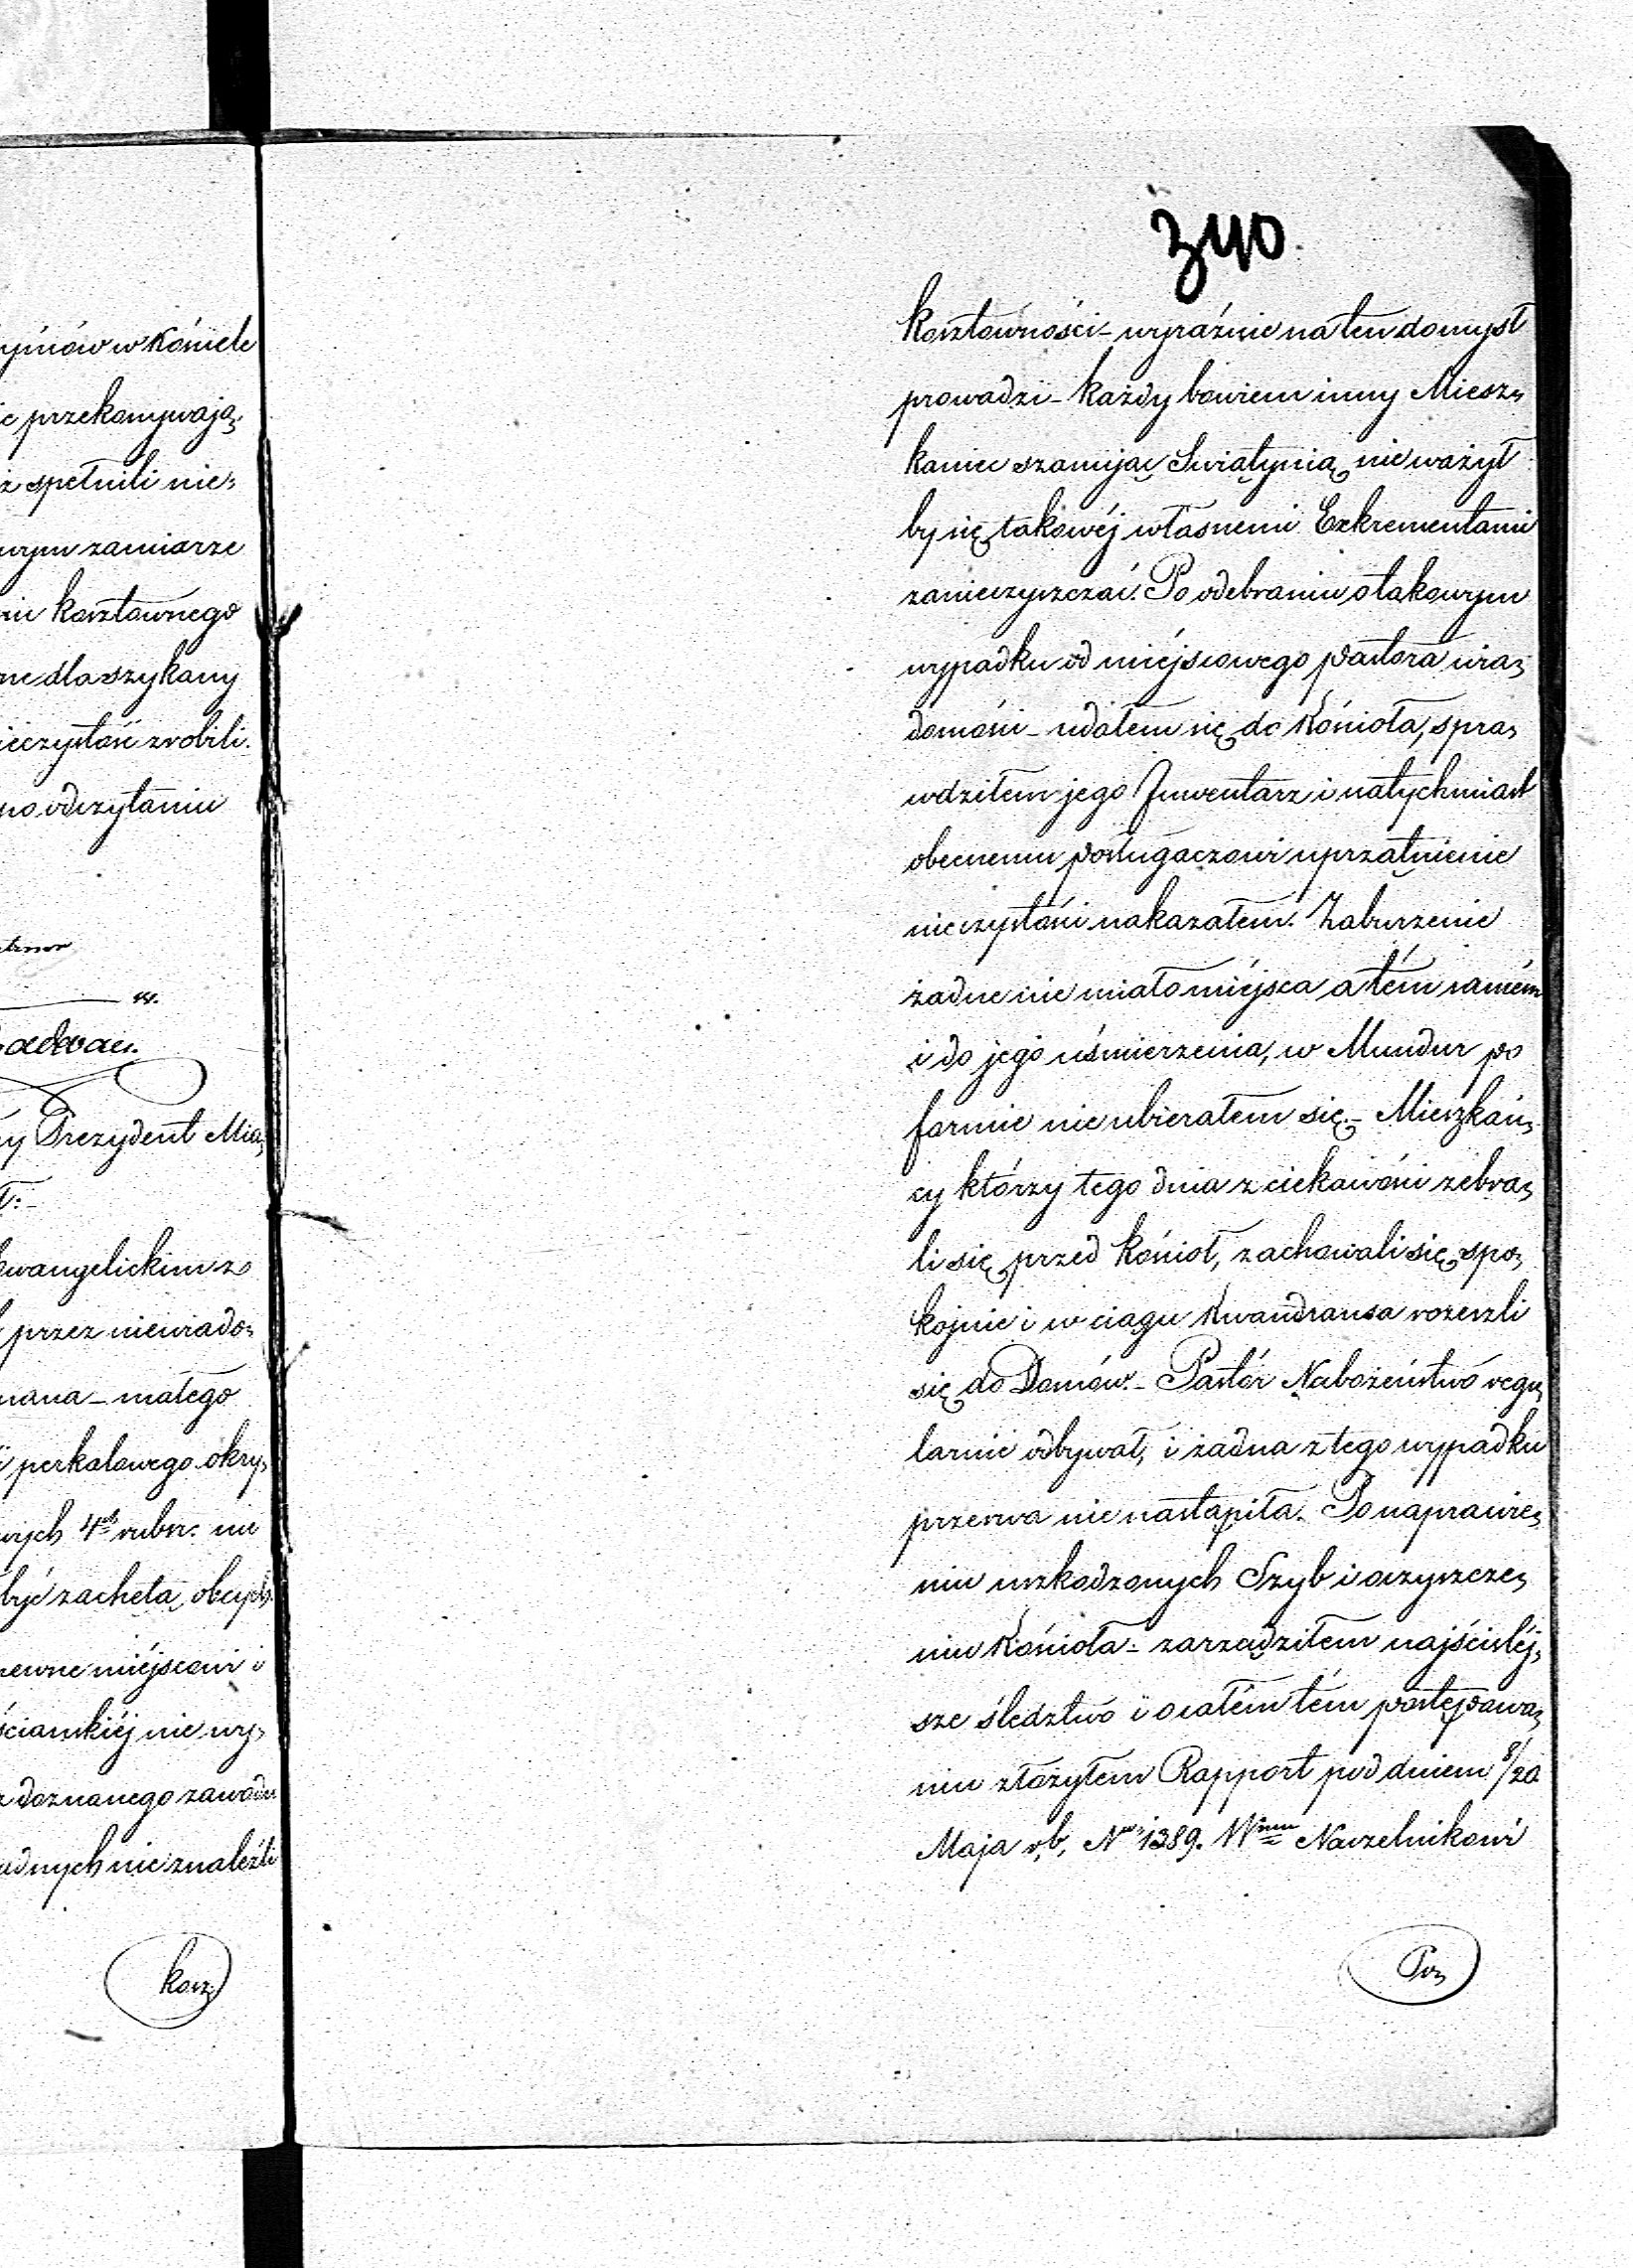 ynów w Kościele
ic przekonywają,
ż spełnili nie,
wym zamiarze
niu kosztownego
ne dla szykany
ieczystość zrobili.
po odczytaniu
w.
ny Prezydent Mia,
ł:-
Ewangelickim z
przez niewiado,
mana - małego
i perkalowego okry,
wych 4 rubsr. nie
być zachętą obcych
pewne miéjscowi i
ściańskiéj nie wy,
z doznanego zawodu
adnych nie znaleźli
kosz,
340
kosztowności - wyraźnie na ten domysł
prowadzi - każdy bowiem inny Miesz,
kaniec szanując Swiątynią nie ważył
by się takowéj własnemi Exkrementami
zanieczyszczać. Po odebraniu o takowym
wypadku od miéjscowego Pastora wia,
domości - udałem się do Kościoła, spra,
wdziłem jego Inwentarz i natychmiast
obecnemu posługaczowi uprzątnienie
nieczystości nakazałem. Zaburzenie
żadne nie miało miéjsca a tém samém
i do jego uśmierzenia, w Mundur po
formie nie ubierałem się - Mieszkań,
cy którzy tego dnia z ciekawości zebra,
li się przed Kościoł, zachowali się spo,
kojnie i w ciągu Kwandransa rozeszli
się do Domów. - Pastór Nabożeństwo regu,
larnie odbywał, i żadna z tego wypadku
przerwa nie nastąpiła. Po naprawie,
niu uszkodzonych Szyb i oczyszcze,
niu Kościoła - zarządziłem najściśléj,
sze śledztwo i o całém tém postępowa,
niu złożyłem Rapport pod dniem 8/20
Maja r.b. Nro 1389. Wmu Naczelnikowi
Po,